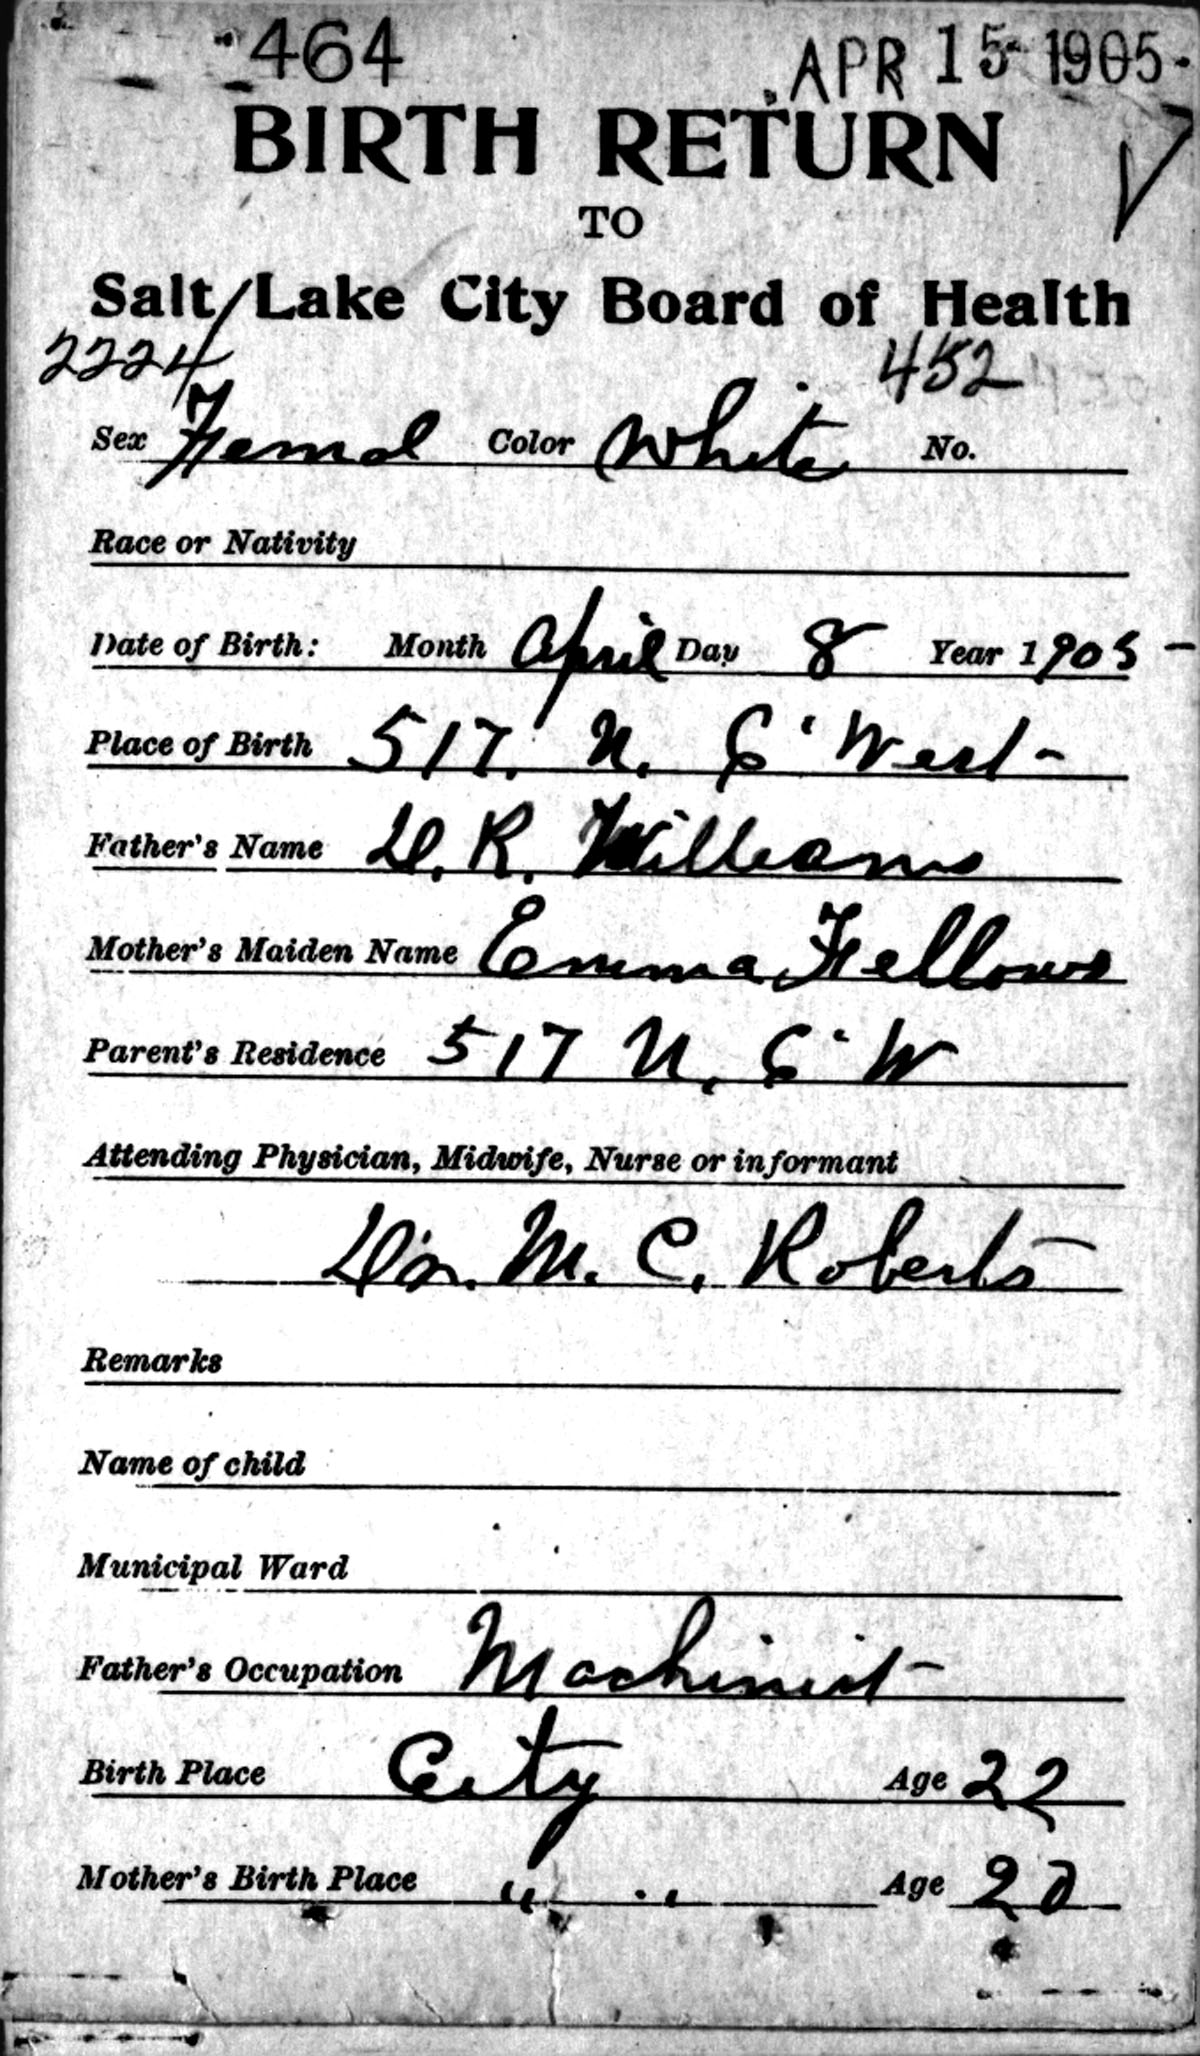 464 APR 15 1905
BIRTH RETURN
TO
Salt Lake City Board of Health
2224 452
Sex Femal Color White No.
Race or Nativity
Date of Birth: Month April Day 8 Year 1905
Place of Birth 517. N. 6' West
Father's Name D. R. Williams
Mother's Maiden Name Emma Fellows
Parent's Residence 517 N. 6' W
Attending Physician, Midwife, Nurse or informant
Dr. M. C. Roberts
Remarks
Name of child
Municipal Ward
Father's Occupation Machinist
Birth Place City Age 22
Mother's Birth Place " " Age 20